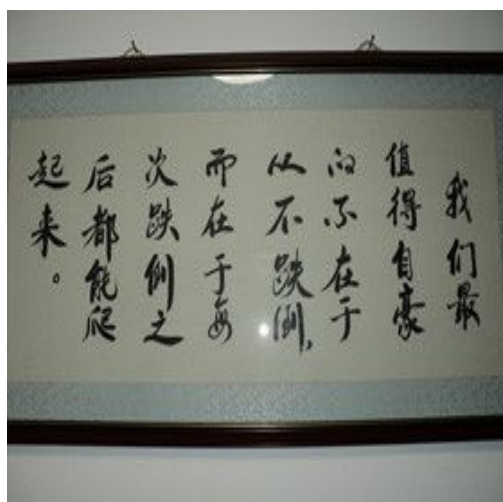 我们最
值得自豪
的不在于
从不跌倒,
而在于每
次跌倒之
后都能爬
起来。